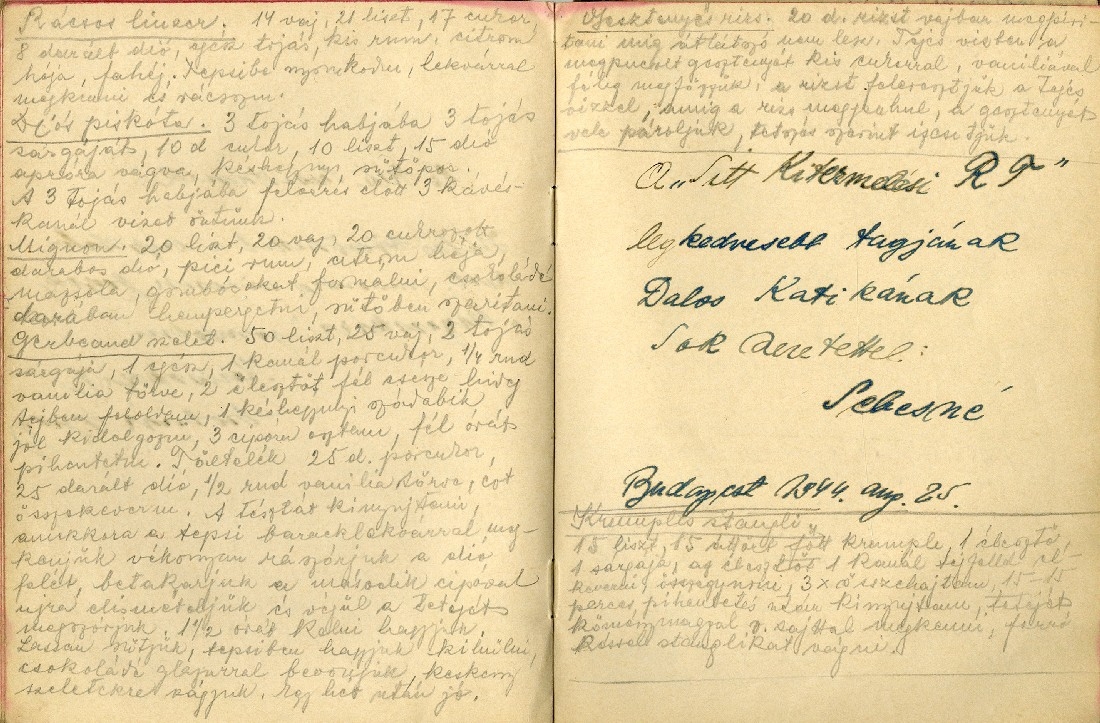 Rácsos lincer. 14 vaj, 21 liszt, 17 cukor,
8 darált dió, egész tojás, kis rum, citrom
héja, fahéj. Tepsibe nyomkodni, lekvárral
megkenni és rácsozni.
Diós piskóta. 3 tojás habjába 3 tojás
sárgáját, 10 d cukor, 10 liszt, 15 dió
apróra vágva, késhegynyi sütőpor.
A 3 tojás habjába felverés előtt 3 kávés-
kanál vizet öntünk.
Mignon. 20 liszt, 20 vaj, 20 cukrozott
darabos dió, pici rum, citrom héja,
mazsola, gombócokat formálni, csokoládé
darában hempergetni, sütőben szárítani.
Gerbeaud szelet. 50 liszt, 25 vaj, 2 tojás
sárgája, 1 egész, 1 kanál porcukor, 1/4 rud
vanilia törve, 2 élesztőt fél csésze hideg
tejben feloldani, 1 késhegynyi szódabik
jól kidolgozni, 3 cipóra osztani, fél órát
pihentetni. Töltelék 25 d. porcukor,
25 darált dió, 1/2 rud vanilia törve,
összekeverni. A tésztát kinyujtani,
amekkora a tepsi baracklekvárral meg-
kenjük vékonyan rászórjuk a dió
felét, betakarjuk a második cipóval
ujra elismételjük és végül a tetejét
megszórjuk. 1 1/2 órát kelni hagyjuk,
Lassan sütjük, tepsiben hagyjuk kihülni,
csokoládé glazurral bevonjuk, keskeny
szeletekre vágjuk. Egy hét után jó.
Gesztenyés rizs. 20 d. rizst vajban megpirí-
tani míg átlátszó nem lesz. Tejes vízben a
megpucolt gesztenyét kis cukorral, vaniliával
félig megfőzzük, a rizst feleresztjük a tejes
vízzel, amíg a rizs megpuhul, a gesztenyét
vele pároljuk, tetszés szerint izesítjük.
A „Sitt Kitermelési R T"
legkedvesebb tagjának
Dalos Katikának
Sok szeretettel:
Sebesné
Budapest 1944. aug. 25.
Krumplis stangli
15 liszt, 15 áttört főtt krumpli, 1 élesztő,
1 sárgája, az élesztőt 1 kanál tejföllel el-
keverni, összegyúrni, 3 x összehajtani, 15-15
perces pihentetés után kinyujtani, tetejét
köménymaggal v. sajttal megkenni, forró
késsel stanglikat vágni.